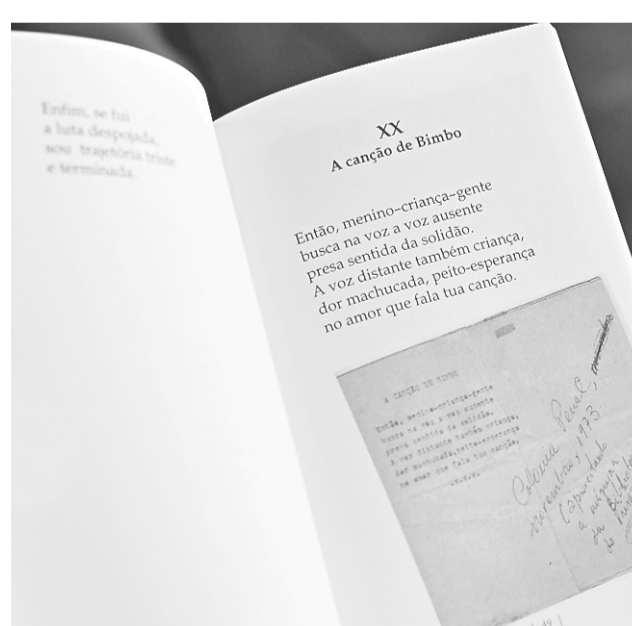 Enfim, se fui
a luta despojada,
sou trajetória triste
e terminada.
XX
A canção de Bimbo
Então, menino–criança–gente
busca na voz a voz ausente
presa sentida da solidão.
A voz distante também criança,
dor machucada, peito-esperança
no amor que fala tua canção.
A CANÇÃO DE BIMBO
Então, menino-criança-gente
busca na voz a voz ausente
presa sentida da solidão.
A voz distante também criança,
dor machucada, peito-esperança
no amor que fala tua canção.
Colônia Penal,
novembro, 1973
a máquina
da Biblioteca
do
49